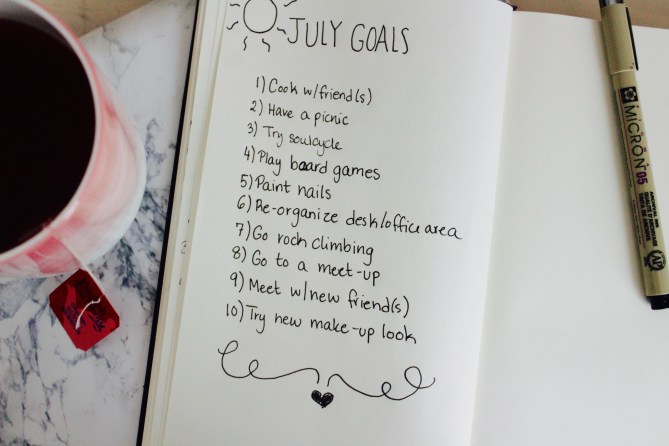 JULY GOALS
1) Cook w/friend(s)
2) Have a picnic
3) Try soulcycle
4) Play board games
5) Paint nails
6) Re-organize desk/office area
7) Go rock climbing
8) Go to a meet-up
9) Meet w/new friend(s)
10) Try new make-up look
MICRON 05